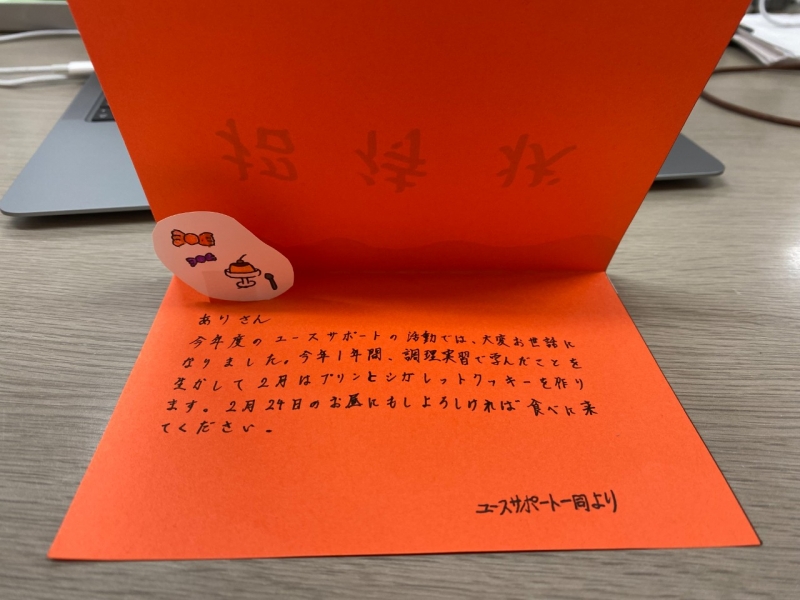 招待状
ありさん
今年度のユースサポートの活動では、大変お世話に
なりました。今年1年間、調理実習で学んだことを
生かして2月はプリンとシガレットクッキーを作り
ます。2月24日のお昼にもしよろしければ食べに来
てください。
ユースサポート一同より